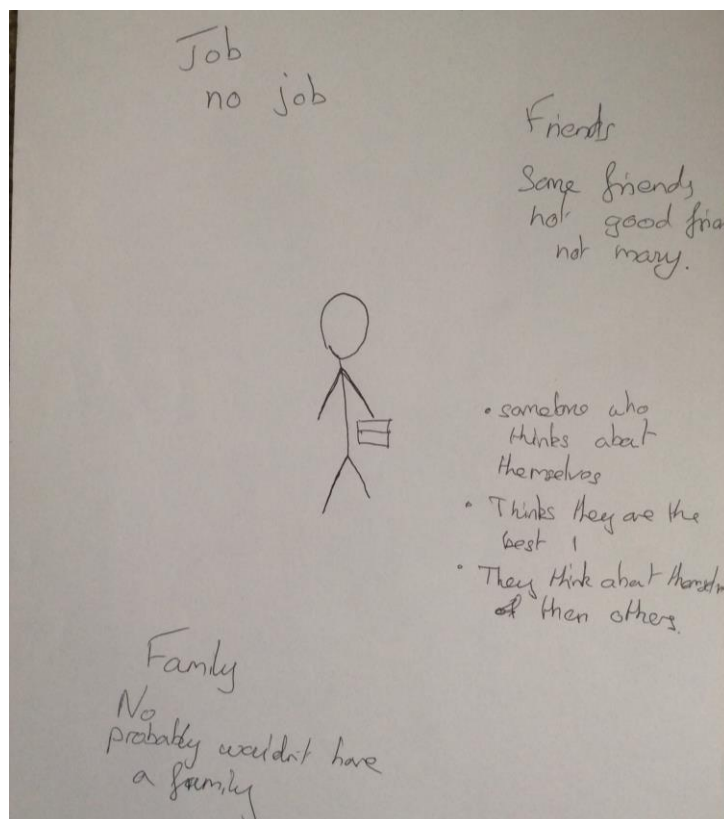 Job
no job
Friends
Some friends
not good
not many.
• someone who
thinks about
themselves
• Thinks they are the
best 1
• They think about
then others.
Family
No
probably wouldn't have
a family